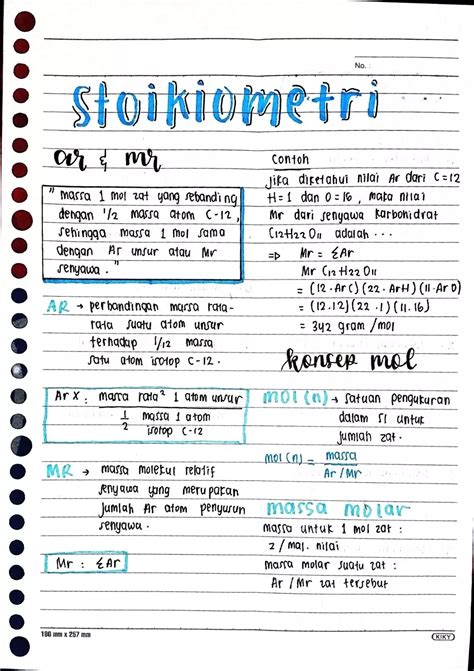 No.
Stoikiometri
ar & mr
"massa 1 mol zat yang sebanding
dengan 1/2 massa atom C-12,
sehingga massa 1 mol sama
dengan Ar unsur atau Mr
senyawa."
AR → perbandingan massa rata-
rata suatu atom unsur
terhadap 1/12 massa
satu atom isotop C-12.
Ar X : massa rata² 1 atom unsur
1/2 massa 1 atom
isotop C-12
MR → massa molekul relatif
senyawa yang merupakan
jumlah Ar atom penyusun
senyawa.
Mr : ΣAr
Contoh
jika diketahui nilai Ar dari C=12
H=1 dan O=16, maka nilai
Mr dari senyawa karbohidrat
C12H22O11 adalah ...
⇒ Mr = ΣAr
Mr C12H22O11
= (12.ArC)(22.ArH)(11.ArO)
= (12.12)(22.1)(11.16)
= 342 gram/mol
konsep mol
mol(n) → satuan pengukuran
dalam SI untuk
jumlah zat.
mol(n) = massa
Ar/Mr
massa molar
massa untuk 1 mol zat :
2/mal. nilai
massa molar suatu zat :
Ar/Mr zat tersebut
190 mm x 257 mm
KIKY